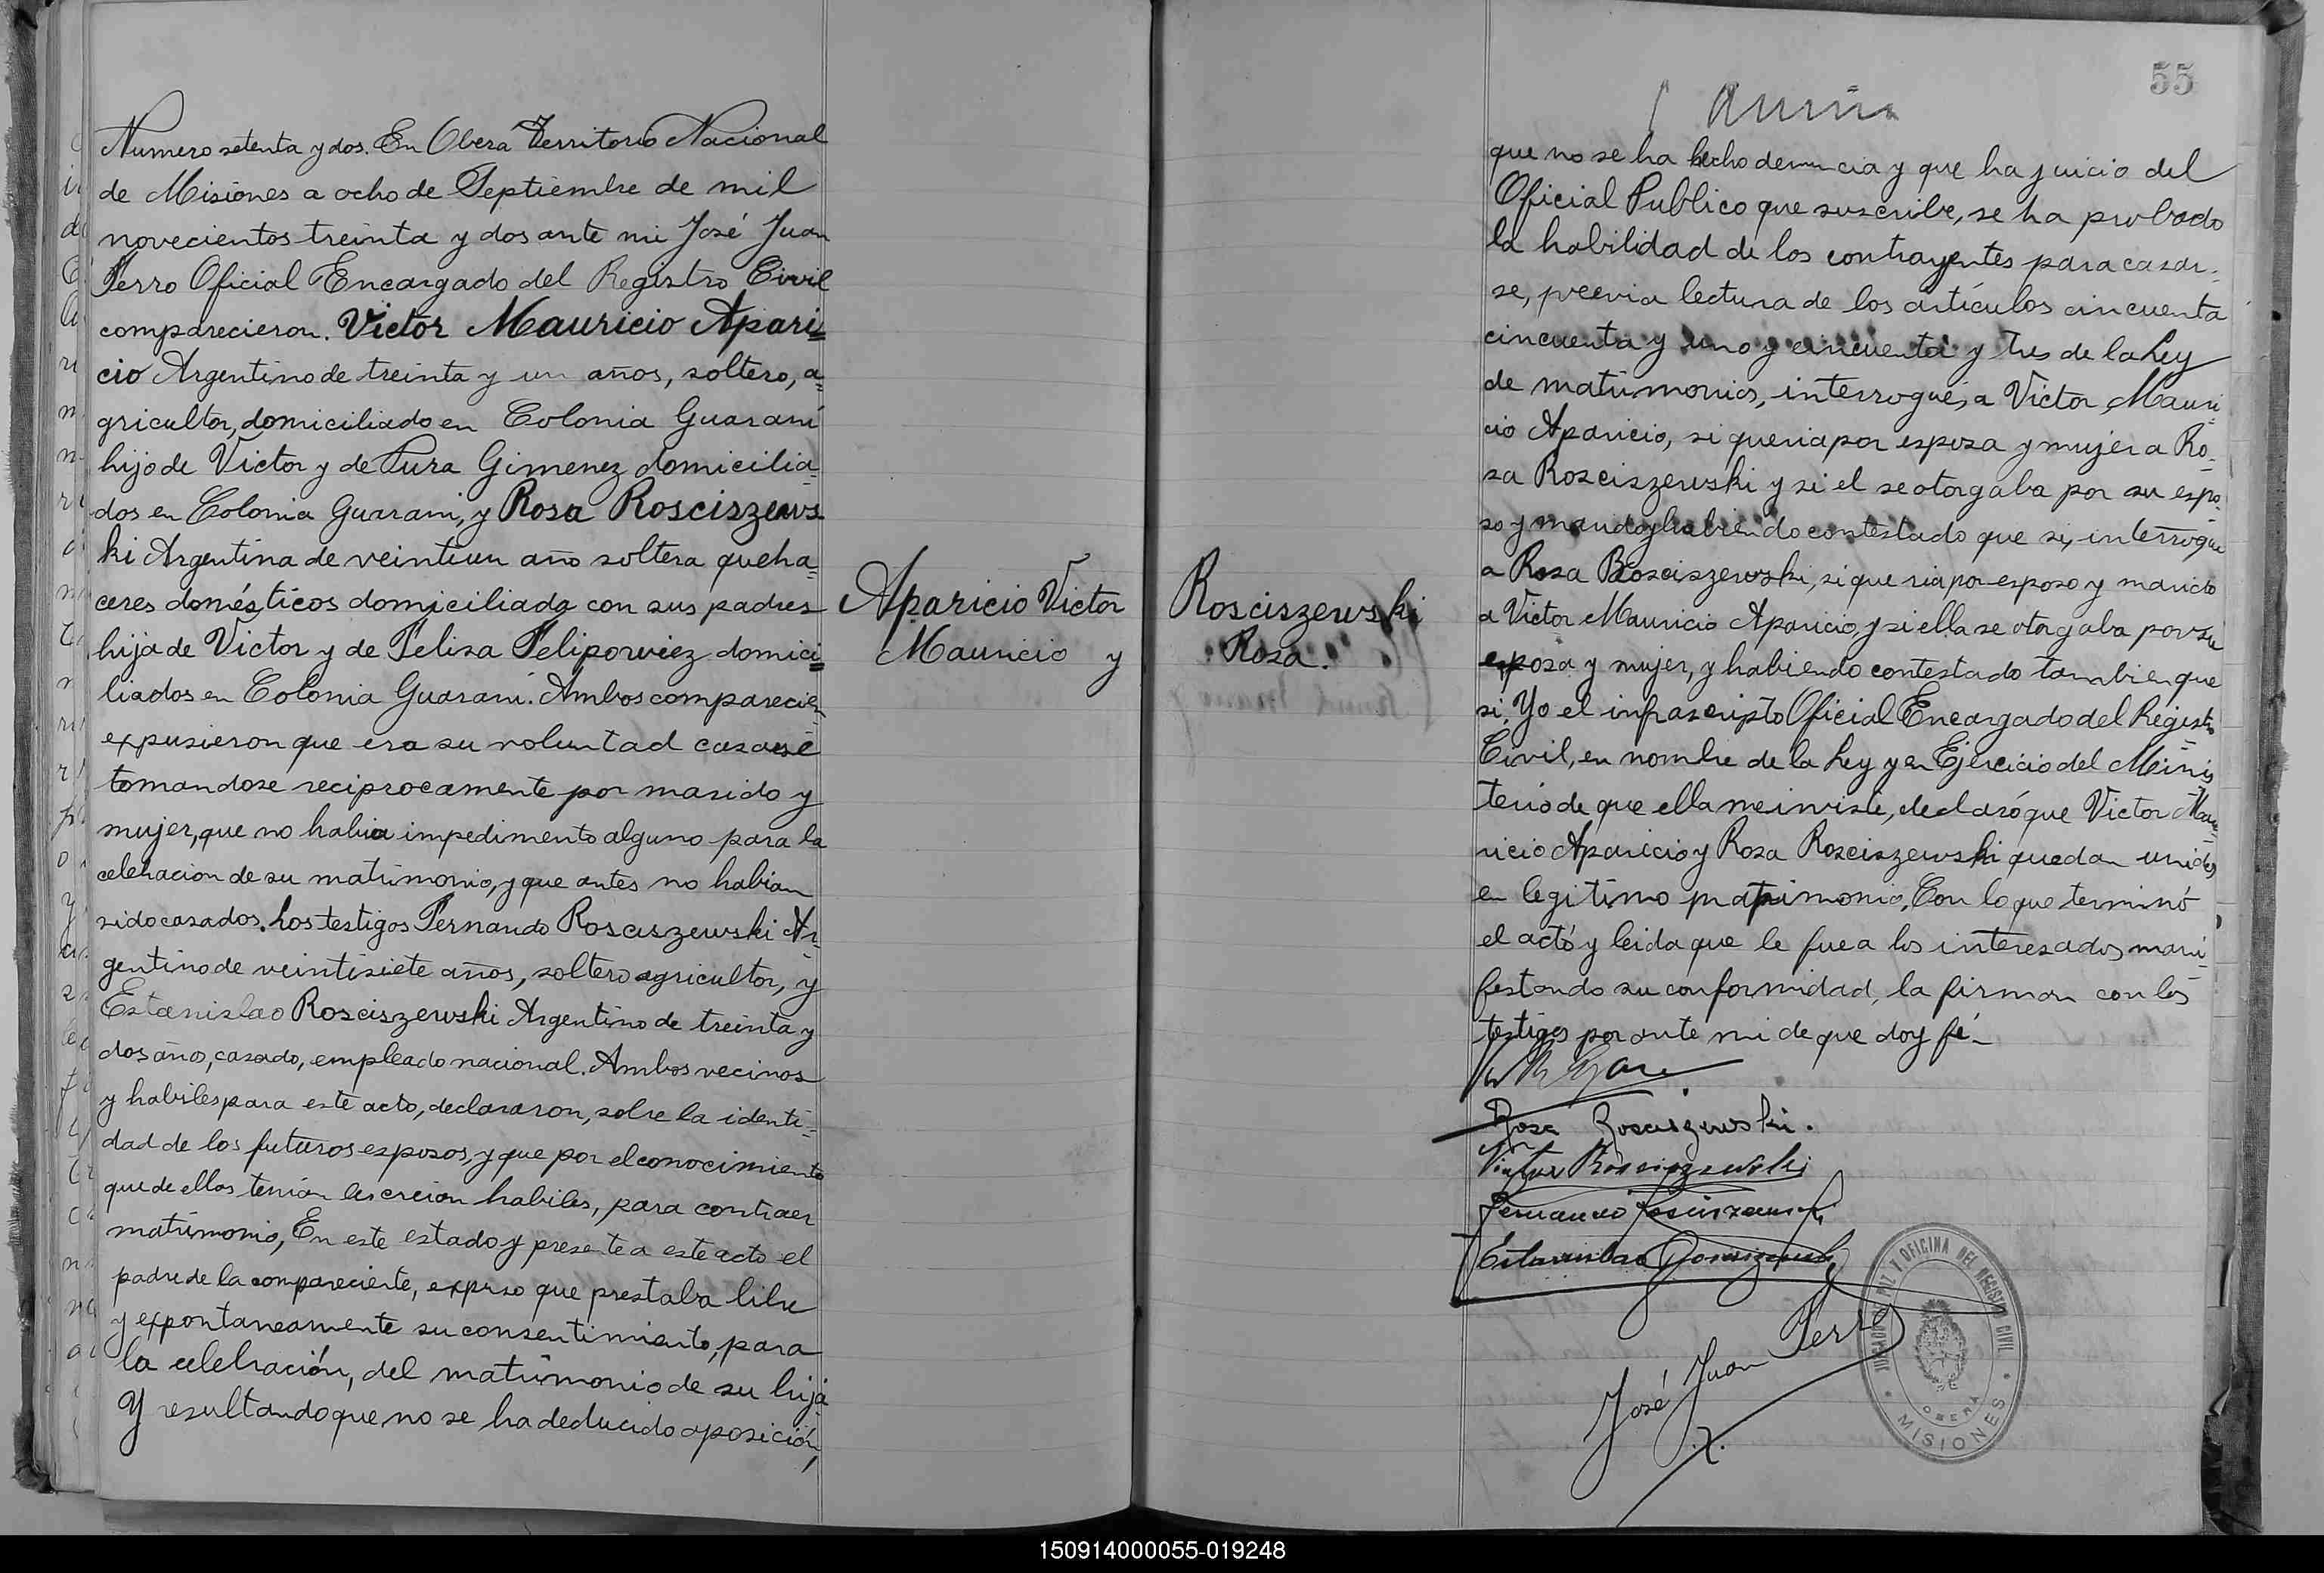 Numero setenta y dos. En Obera Territorio Nacional
de Misiones a ocho de Septiembre de mil
novecientos treinta y dos ante mi José Juan
Ferro Oficial Encargado del Registro Civil
comparecieron. Victor Mauricio Apari=
cio Argentino de treinta y un años, soltero, a=
gricultor, domiciliado en Colonia Guarani
hijo de Victor y de Pura Gimenez domicilia=
dos en Colonia Guarani, y Rosa Rosciszews
ki Argentina de veintiun año soltera queha=
ceres domésticos domiciliada con sus padres
hija de Victor y de Felisa Feliporwiez domici=
liados en Colonia Guarani. Ambos comparecien
expusieron que era su voluntad casarse
tomandose reciprocamente por marido y
mujer, que no habia impedimento alguno para la
celebracion de su matrimonio, y que antes no habian
sido casados. Los testigos Fernando Rosciszewski Ar=
gentino de veintisiete años, soltero agricultor, y
Estanislao Rosciszewski Argentino de treinta y
dos año, casado, empleado nacional. Ambos vecinos
y habiles para este acto, declararon, sobre la identi=
dad de los futuros esposos, y que por el conocimiento
que de ellos tenian les creian habiles, para contraer
matrimonio, En este estado y presente a este acto el
padre de la compareciente, expuso que prestaba libre
y expontaneamente su consentimiento, para
la celebración, del matrimonio de su hija
Y resultando que no se ha deducido oposición,
Aparicio Victor
Mauricio y
Rosciszewski
Rosa.
55
que no se ha hecho denuncia y que ha juicio del
Oficial Publico que suscribe, se ha probado
la habilidad de los contrayentes para casar-
se, previa lectura de los artículos cincuenta
cincuenta y uno y cincuenta y tres de la Ley
de matrimonios, interrogué, a Victor Mauri=
cio Aparicio, si queria por esposa y mujer a Ro=
sa Rosciszewski y si el se otorgaba por su espo=
so y marido y habiendo contestado que si, interrogue
a Rosa Rosciszewski, si queria por esposo y marido
a Victor Mauricio Aparicio, y si ella se otorgaba por su
esposa y mujer, y habiendo contestado tambien que
si. Yo el infrascripto Oficial Encargado del Registro
Civil, en nombre de la Ley y en Ejercicio del Minis
terio de que ella me inviste, declaró que Victor Mau=
ricio Aparicio y Rosa Rosciszewski quedan unidos
en legitimo matrimonio, Con lo que terminó
el actó y leida que le fue a los interesados mani=
festando su conformidad, la firman con los
testigos por ante mi de que doy fé-
Rosa Rosciszewski.
Victor Rosciszewski
Fernando Rosciszewski
Estanislao Rosciszewski
José Juan Ferro
JUZGADO DE PAZ Y OFICINA DEL REGISTRO CIVIL
DE
OBERA
MISIONES
150914000055-019248